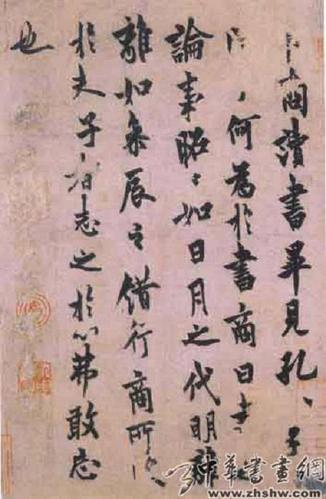 商讀書畢見孔、子
何為於書商曰書
論事昭、如日月之代明離
離如參辰之錯行商所
於夫子者志之於心弗敢忘
也
中華書畫網
www.zhshw.com